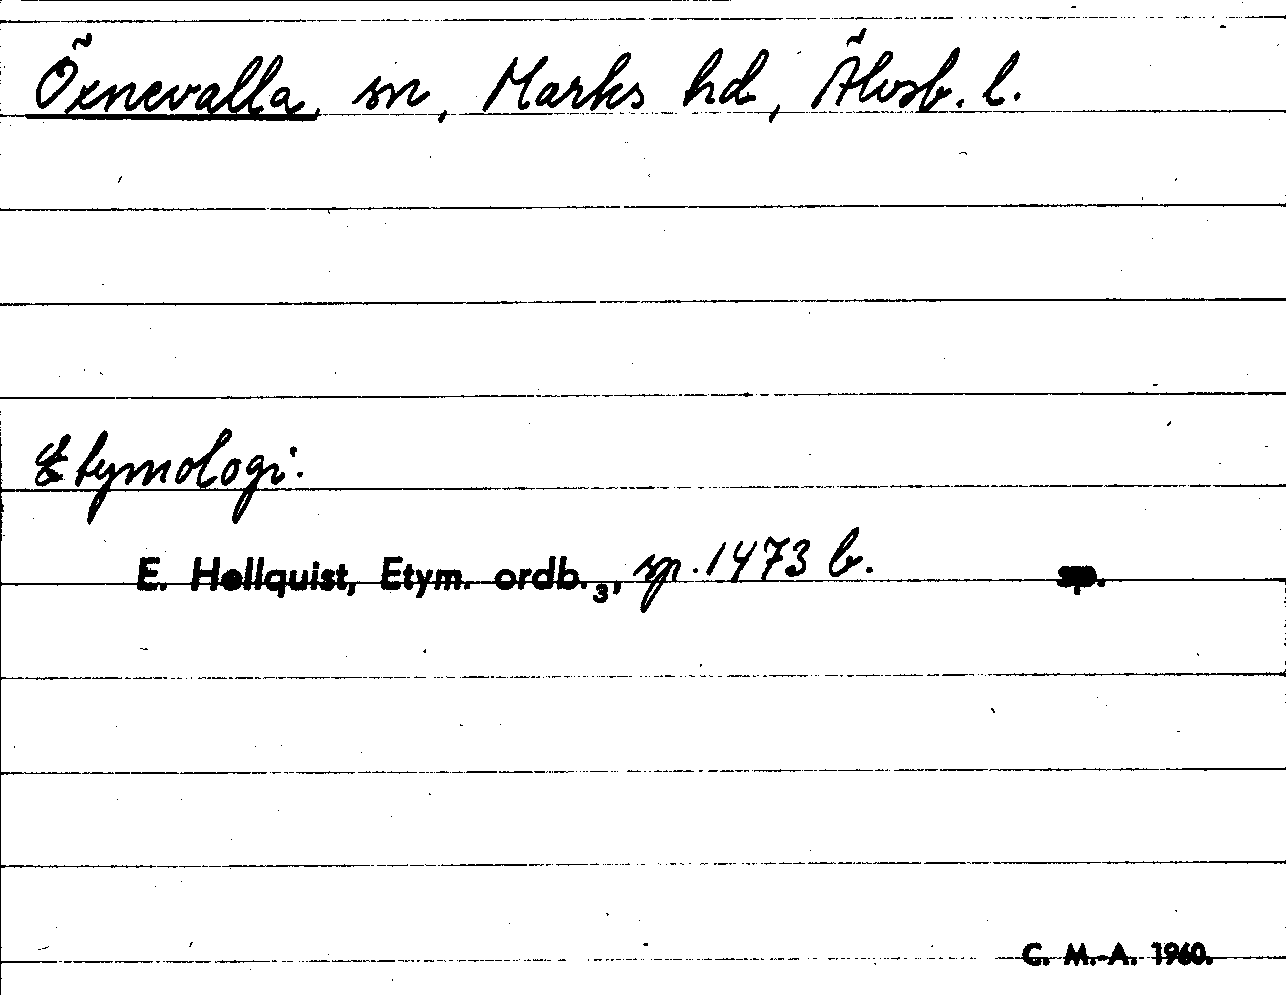 Öxnevalla, sn, Marks hd, Älvsb. l.
Etymologi:
E. Hellquist, Etym. ordb.₃, sp. 1473 b. sp.
C. M.-A. 1960.